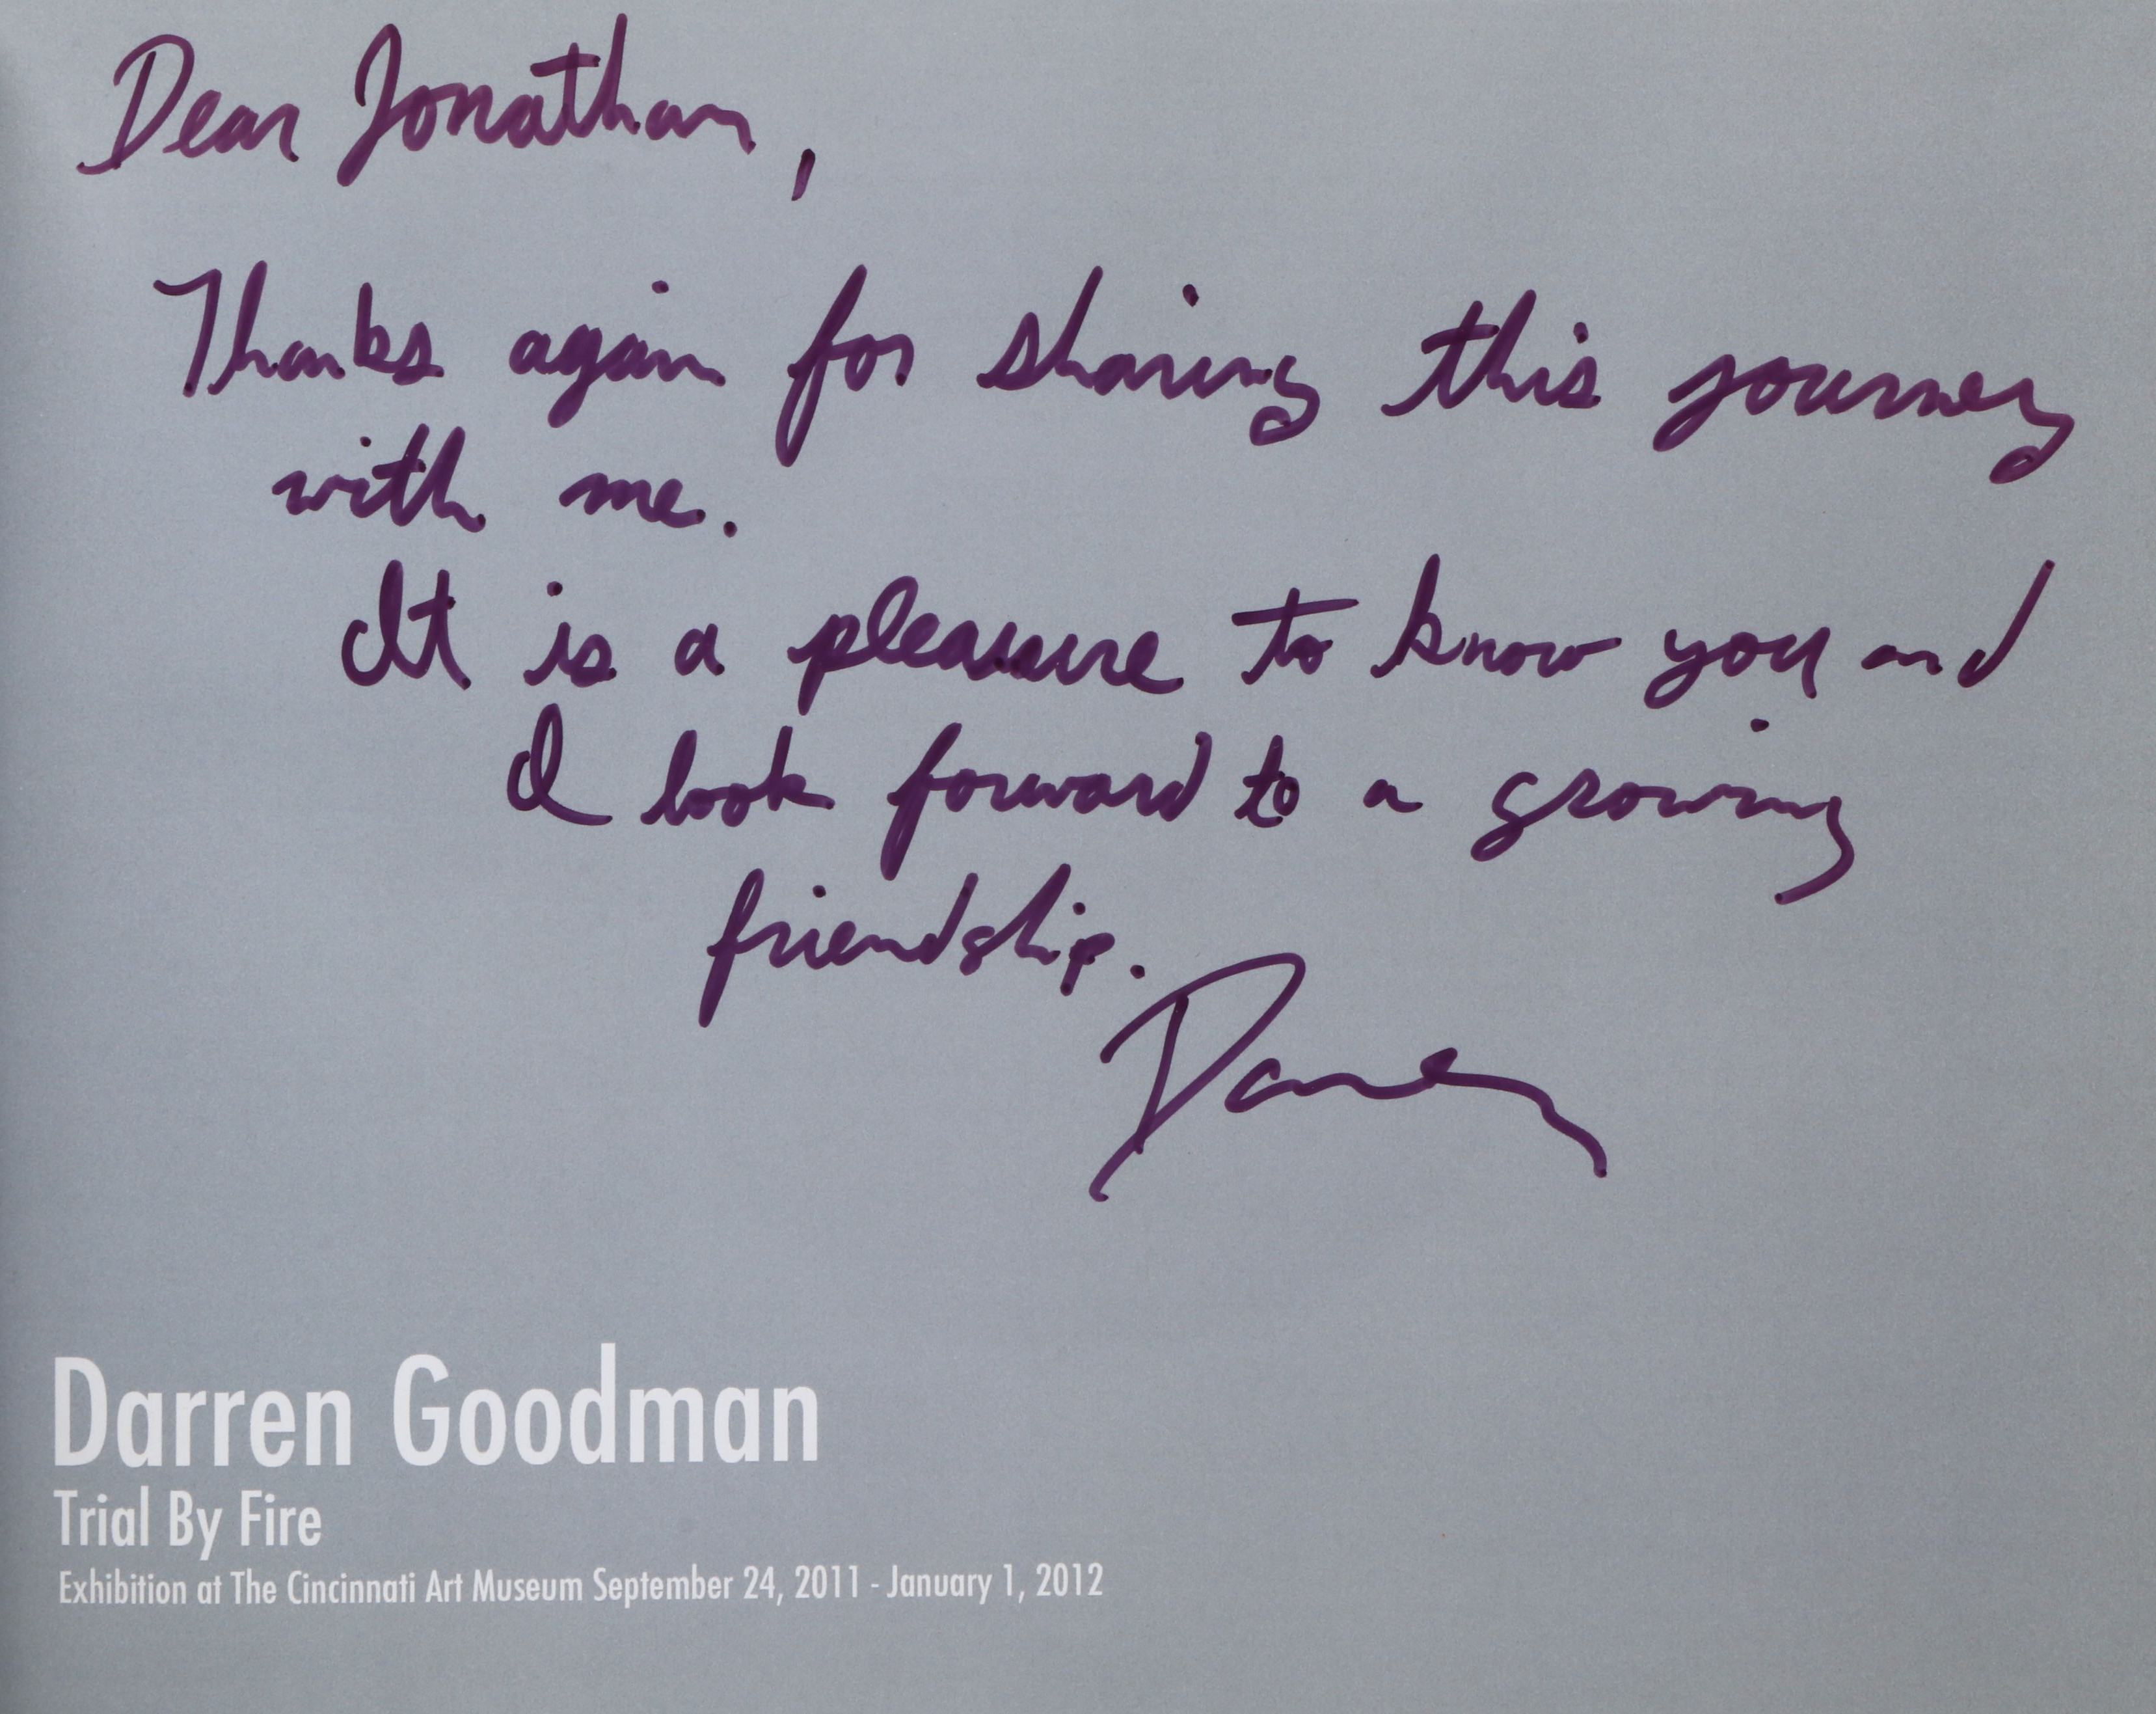 Dear Jonathan,
Thanks again for sharing this journey
with me.
It is a pleasure to know you and
I look forward to a growing
friendship.
Darren
Darren Goodman
Trial By Fire
Exhibition at The Cincinnati Art Museum September 24, 2011 - January 1, 2012